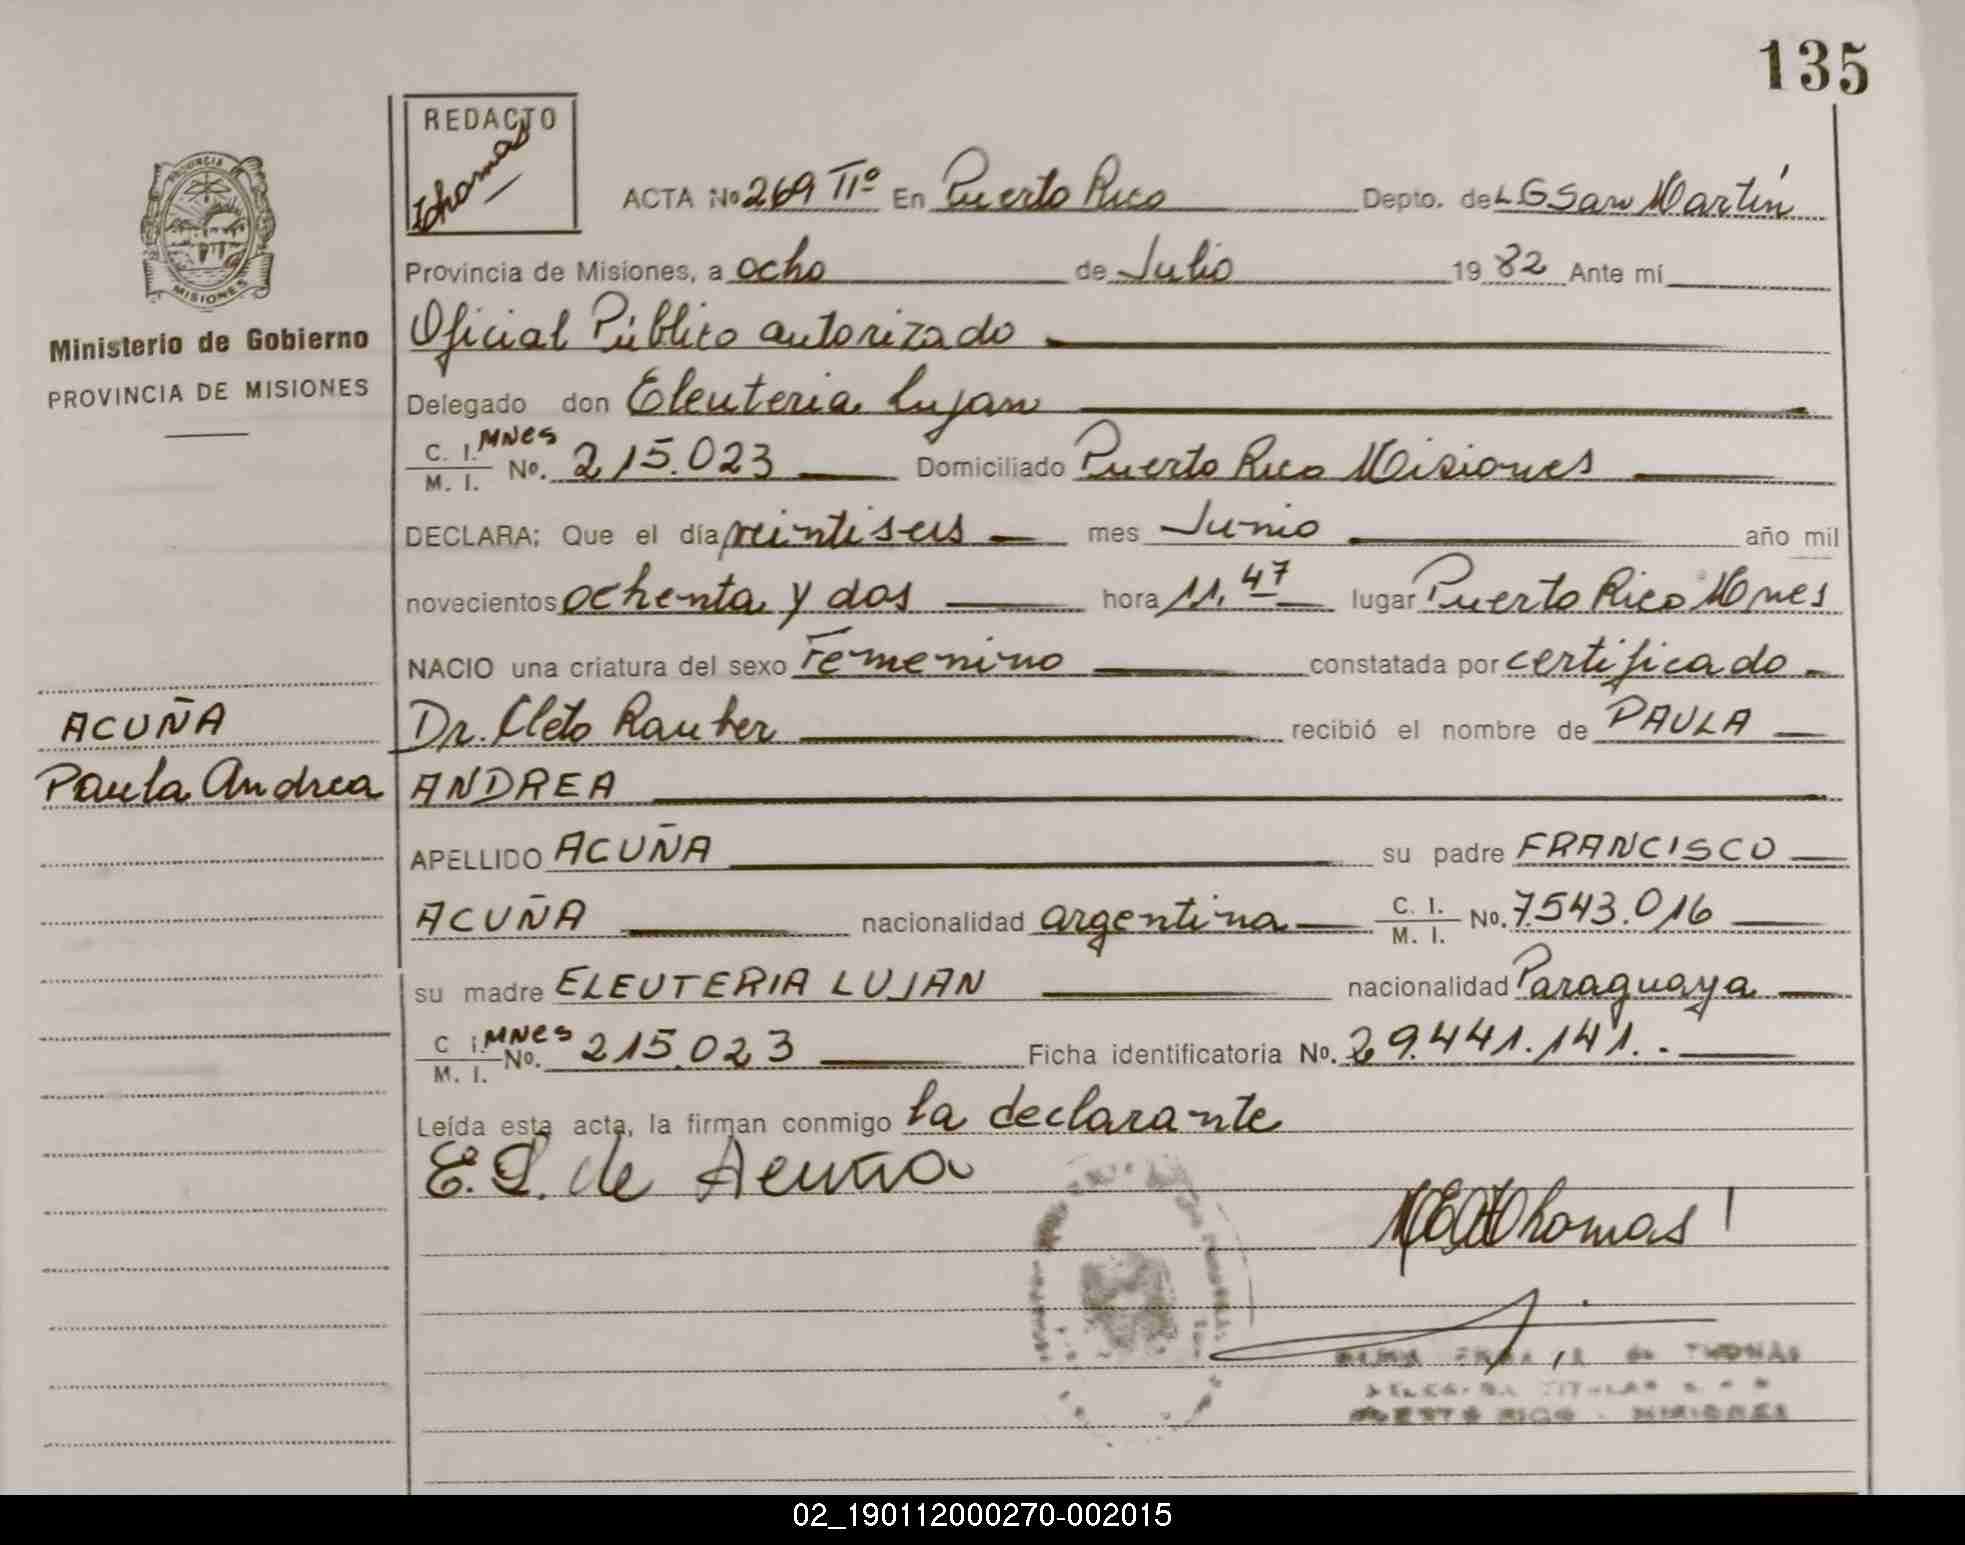 135
REDACTO
Thomas
ACTA No 269 IIº En Puerto Rico Depto. de L G San Martín
Provincia de Misiones, a ocho de Julio 1982 Ante mí
Oficial Público autorizado
Delegado don Eleuteria Lujan
C. I. MNes
M. I. No. 215.023 Domiciliado Puerto Rico Misiones
DECLARA; Que el día veintiseis mes Junio año mil
novecientos ochenta y dos hora 11,47 lugar Puerto Rico Mnes
NACIO una criatura del sexo Femenino constatada por certificado
Dr. Cleto Rauber recibió el nombre de PAULA
ANDREA
APELLIDO ACUÑA su padre FRANCISCO
ACUÑA nacionalidad argentina C. I. M. I. No. 7.543.016
su madre ELEUTERIA LUJAN nacionalidad Paraguaya
C I. MNes
M. I. No. 215.023 Ficha identificatoria No. 29.441.141.-
Leída esta acta, la firman conmigo la declarante
E. L. de Acuña
Thomas
de THOMAS
PUERTO RICO - MISIONES
PROVINCIA DE
MISIONES
Ministerio de Gobierno
PROVINCIA DE MISIONES
ACUÑA
Paula Andrea
02_190112000270-002015